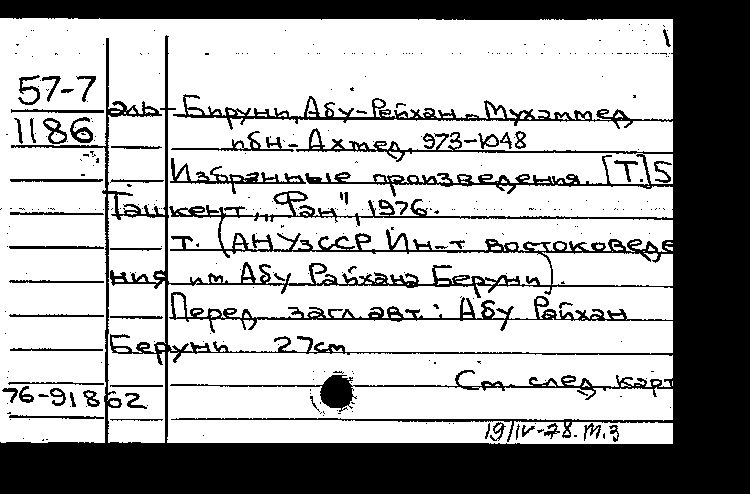 1
57-7
аль-Бируни, Абу-Рейхан-Мухаммед
1186
ибн-Ахмед, 973-1048
Избранные произведения. [Т.] 5
Ташкент, „Фан", 1976.
т. (АН УзССР. Ин-т востоковеде
ния им. Абу Райхана Беруни).
Перед загл. авт.: Абу Райхан
Беруни 27см
См. след. карт
76-91862
19/IV-78. М.З